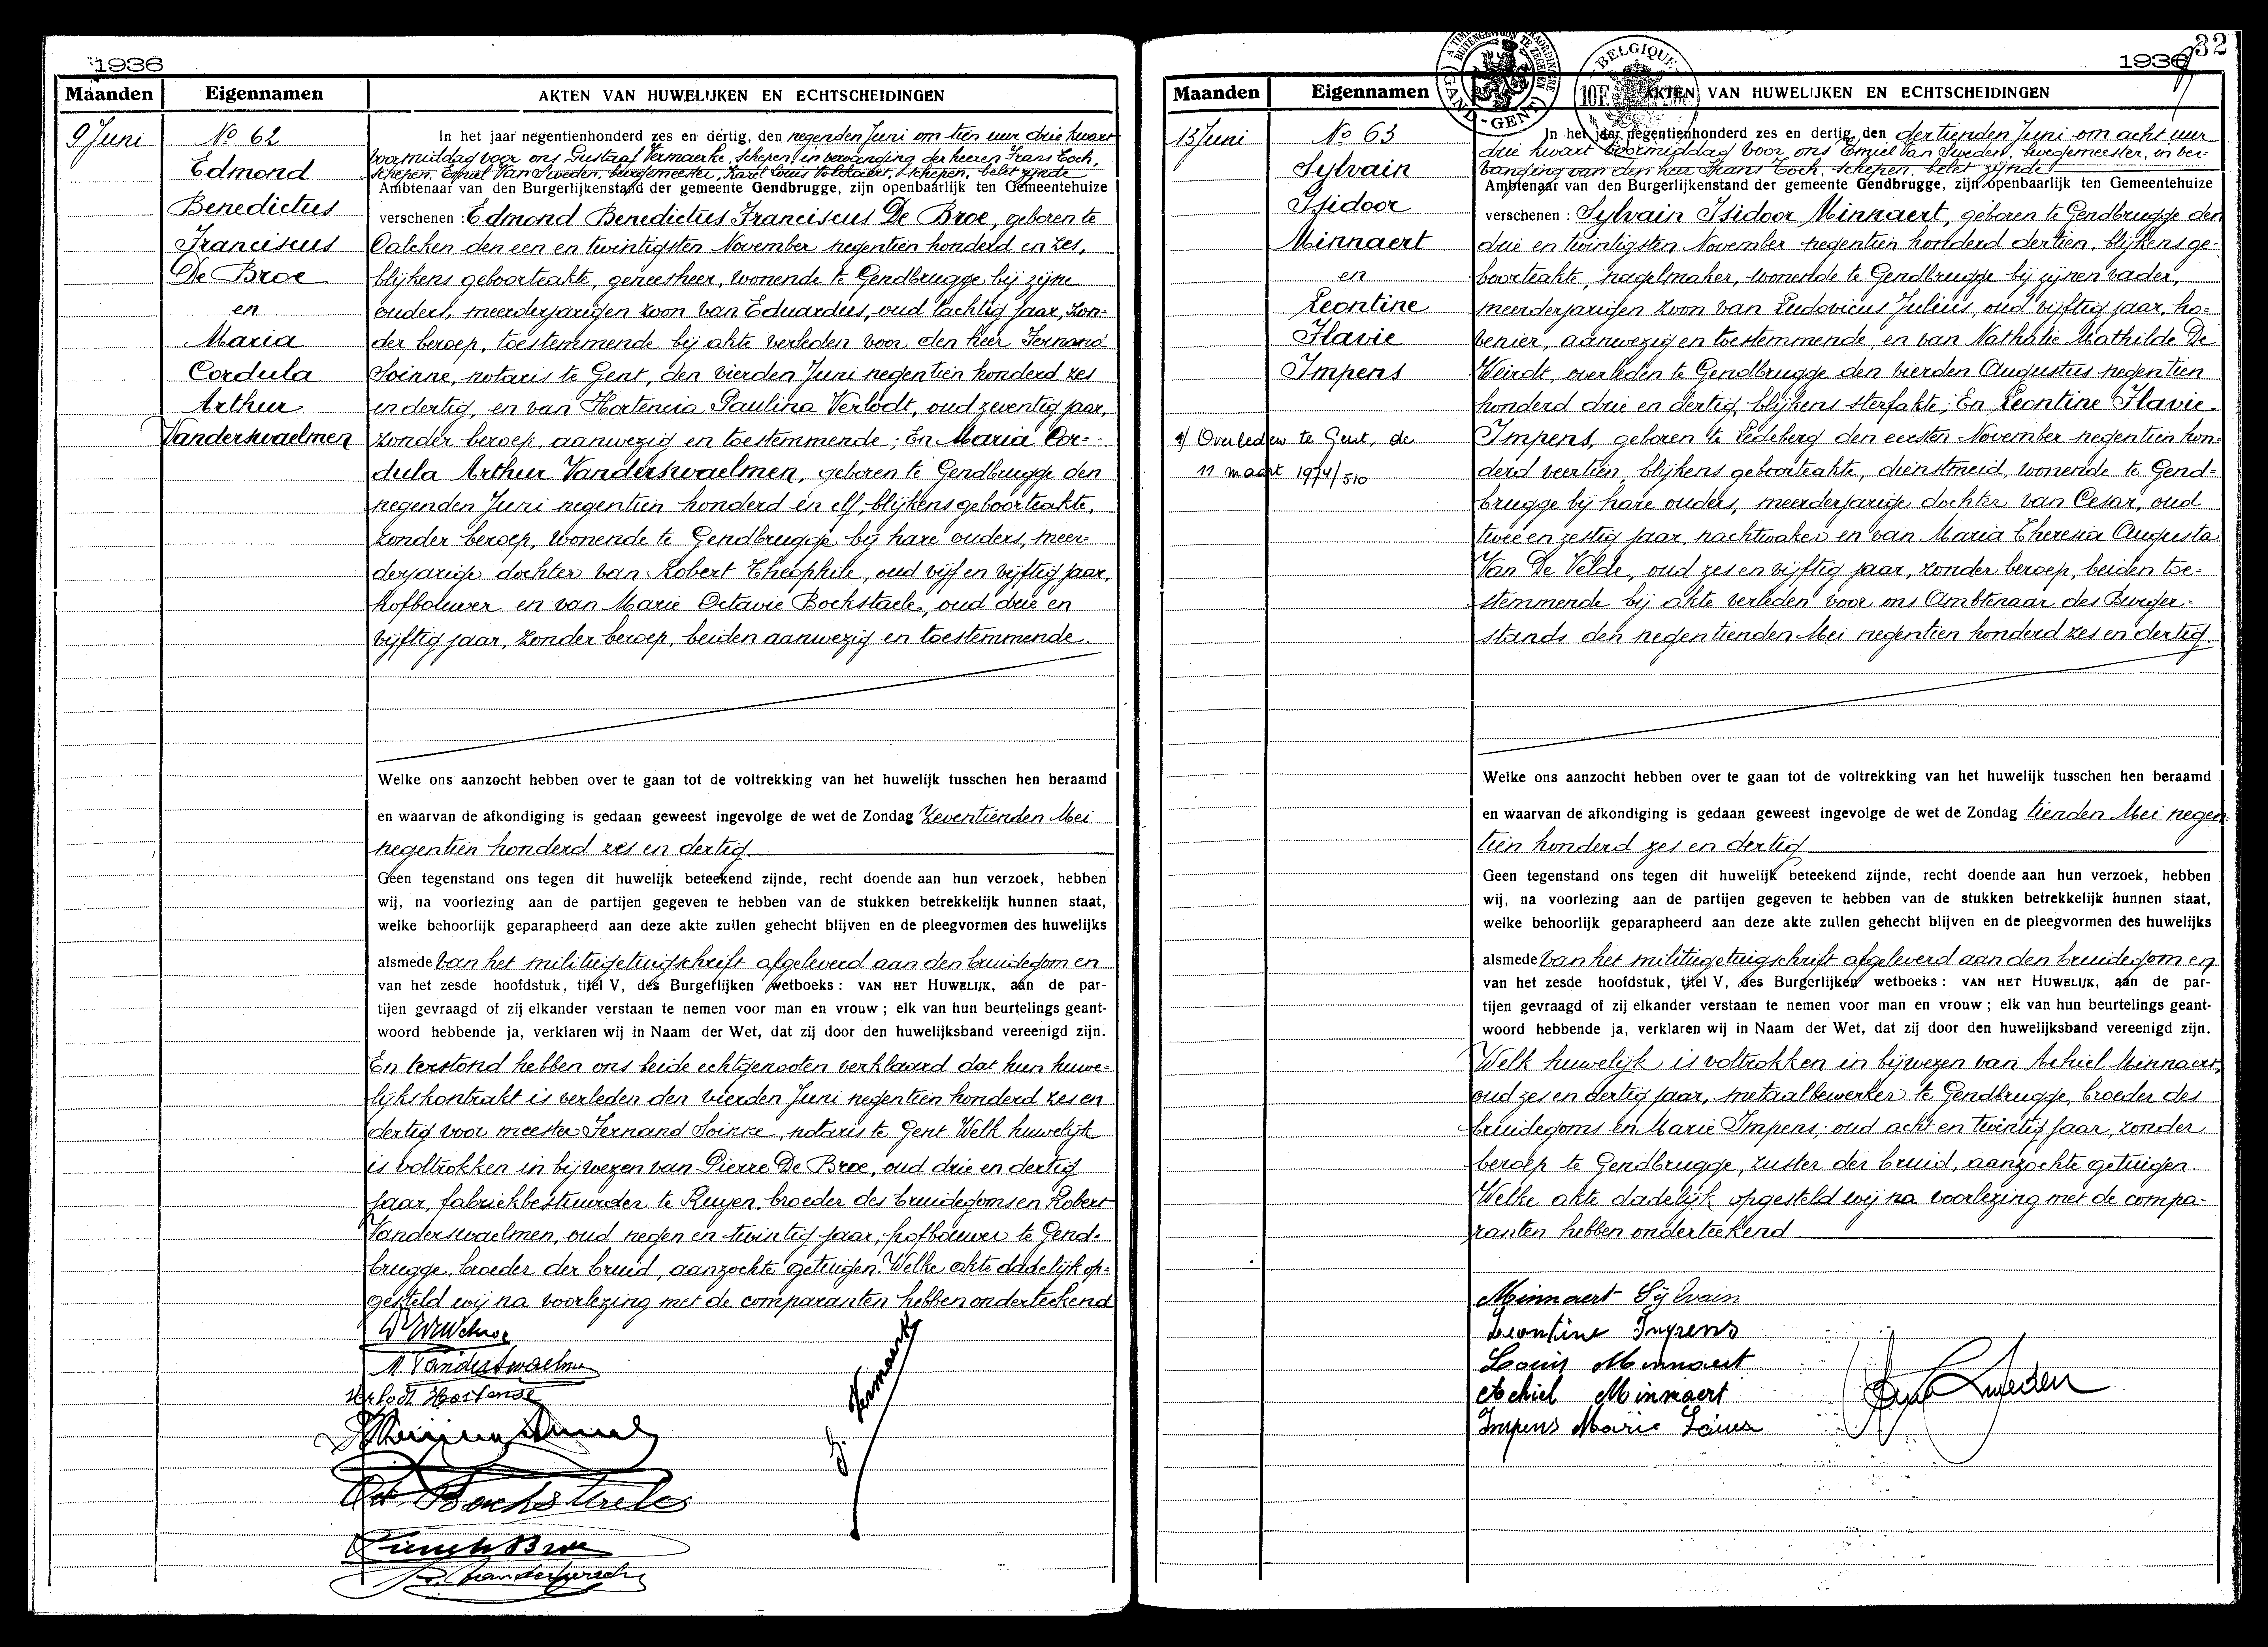 1936
Maanden
Eigennamen
AKTEN VAN HUWELIJKEN EN ECHTSCHEIDINGEN
9 Juni
No 62
Edmond
Benedictus
Franciscus
De Broe
en
Maria
Cordula
Arthur
Vanderswaelmen
In het jaar negentienhonderd zes en dertig, den negenden Juni om tien uur drie kwart
voormiddag voor ons Gustaaf Vermaerke, schepen, in vervanging der heeren Frans Toch,
schepen, Emiel Van Sweden, burgemeester, Karel Louis, schepen, belet zijnde
Ambtenaar van den Burgerlijkenstand der gemeente Gendbrugge, zijn openbaarlijk ten Gemeentehuize
verschenen : Edmond Benedictus Franciscus De Broe, geboren te
Calcken den een en twintigsten November negentien honderd en zes,
blijkens geboorteakte, geneesheer, wonende te Gendbrugge bij zijne
ouders, meerderjarigen zoon van Eduardus, oud tachtig jaar, zon=
der beroep, toestemmende bij akte verleden voor den heer Fernand
Soinne, notaris te Gent, den vierden Juni negentien honderd zes
en dertig, en van Hortencia Paulina Verlodt, oud zeventig jaar,
zonder beroep, aanwezig en toestemmende; En Maria Cor=
dula Arthur Vanderswaelmen, geboren te Gendbrugge den
negenden Juni negentien honderd en elf, blijkens geboorteakte,
zonder beroep, wonende te Gendbrugge bij hare ouders, meer=
derjarige dochter van Robert Theophile, oud vijf en vijftig jaar,
hofbouwer en van Marie Octavie Bockstaele, oud drie en
vijftig jaar, zonder beroep, beiden aanwezig en toestemmende.
Welke ons aanzocht hebben over te gaan tot de voltrekking van het huwelijk tusschen hen beraamd
en waarvan de afkondiging is gedaan geweest ingevolge de wet de Zondag zeventienden Mei
negentien honderd zes en dertig
Geen tegenstand ons tegen dit huwelijk beteekend zijnde, recht doende aan hun verzoek, hebben
wij, na voorlezing aan de partijen gegeven te hebben van de stukken betrekkelijk hunnen staat,
welke behoorlijk geparapheerd aan deze akte zullen gehecht blijven en de pleegvormen des huwelijks
alsmede van het militiegetuigschrift afgeleverd aan den bruidegom en
van het zesde hoofdstuk, titel V, des Burgerlijken wetboeks : VAN HET HUWELIJK, aan de par-
tijen gevraagd of zij elkander verstaan te nemen voor man en vrouw ; elk van hun beurtelings geant-
woord hebbende ja, verklaren wij in Naam der Wet, dat zij door den huwelijksband vereenigd zijn.
En terstond hebben ons beide echtgenooten verklaard dat hun huwe=
lijkskontrakt is verleden den vierden Juni negentien honderd zes en
dertig voor meester Fernand Soinne, notaris te Gent. Welk huwelijk
is voltrokken in bijwezen van Pierre De Broe, oud drie en dertig
jaar, fabriekbestuurder te Ruyen, broeder des bruidegoms en Robert
Vanderswaelmen, oud negen en twintig jaar, hofbouwer te Gend=
brugge, broeder der bruid, aanzochte getuigen. Welke akte dadelijk op=
gesteld wij na voorlezing met de comparanten hebben onderteekend
M Vanderswaelmen
Verlodt Hortense
Oct. Bockstaele
Pierre De Broe
G. Vermaerke
32
1936
BELGIQUE
10F
GAND-GENT
Maanden
Eigennamen
AKTEN VAN HUWELIJKEN EN ECHTSCHEIDINGEN
13 Juni
No 63
Sylvain
Isidoor
Minnaert
en
Leontine
Flavie
Impens
Overleden te Gent, de
11 maart 1974/510
In het jaar negentienhonderd zes en dertig, den dertienden Juni om acht uur
drie kwart voormiddag voor ons Emiel Van Sweden, burgemeester, in ver=
vanging van den heer Frans Toch, schepen, belet zijnde
Ambtenaar van den Burgerlijkenstand der gemeente Gendbrugge, zijn openbaarlijk ten Gemeentehuize
verschenen : Sylvain Isidoor Minnaert, geboren te Gendbrugge den
drie en twintigsten November negentien honderd dertien, blijkens ge=
boorteakte, nagelmaker, wonende te Gendbrugge bij zijnen vader,
meerderjarigen zoon van Ludovicus Julius, oud vijftig jaar, ho=
venier, aanwezig en toestemmende, en van Nathalie Mathilde De
Weirdt, overleden te Gendbrugge den vierden Augustus negentien
honderd drie en dertig, blijkens sterfakte; En Leontine Flavie
Impens, geboren te Ledeberg den eersten November negentien hon=
derd veertien, blijkens geboorteakte, dienstmeid, wonende te Gend=
brugge bij hare ouders, meerderjarige dochter van Cesar, oud
twee en zestig jaar, nachtwaker en van Maria Theresia Augusta
Van De Velde, oud zes en vijftig jaar, zonder beroep, beiden toe=
stemmende bij akte verleden voor ons Ambtenaar des Burger=
stands den negentienden Mei negentien honderd zes en dertig
Welke ons aanzocht hebben over te gaan tot de voltrekking van het huwelijk tusschen hen beraamd
en waarvan de afkondiging is gedaan geweest ingevolge de wet de Zondag tienden Mei negen=
tien honderd zes en dertig
Geen tegenstand ons tegen dit huwelijk beteekend zijnde, recht doende aan hun verzoek, hebben
wij, na voorlezing aan de partijen gegeven te hebben van de stukken betrekkelijk hunnen staat,
welke behoorlijk geparapheerd aan deze akte zullen gehecht blijven en de pleegvormen des huwelijks
alsmede van het militiegetuigschrift afgeleverd aan den bruidegom en
van het zesde hoofdstuk, titel V, des Burgerlijken wetboeks : VAN HET HUWELIJK, aan de par-
tijen gevraagd of zij elkander verstaan te nemen voor man en vrouw ; elk van hun beurtelings geant-
woord hebbende ja, verklaren wij in Naam der Wet, dat zij door den huwelijksband vereenigd zijn.
Welk huwelijk is voltrokken in bijwezen van Achiel Minnaert,
oud zes en dertig jaar, metaalbewerker te Gendbrugge, broeder des
bruidegoms en Marie Impens, oud acht en twintig jaar, zonder
beroep te Gendbrugge, zuster der bruid, aanzochte getuigen.
Welke akte dadelijk opgesteld wij na voorlezing met de compa=
ranten hebben onderteekend
Minnaert Sylvain
Leontine Impens
Louis Minnaert
Achiel Minnaert
Impens Marie